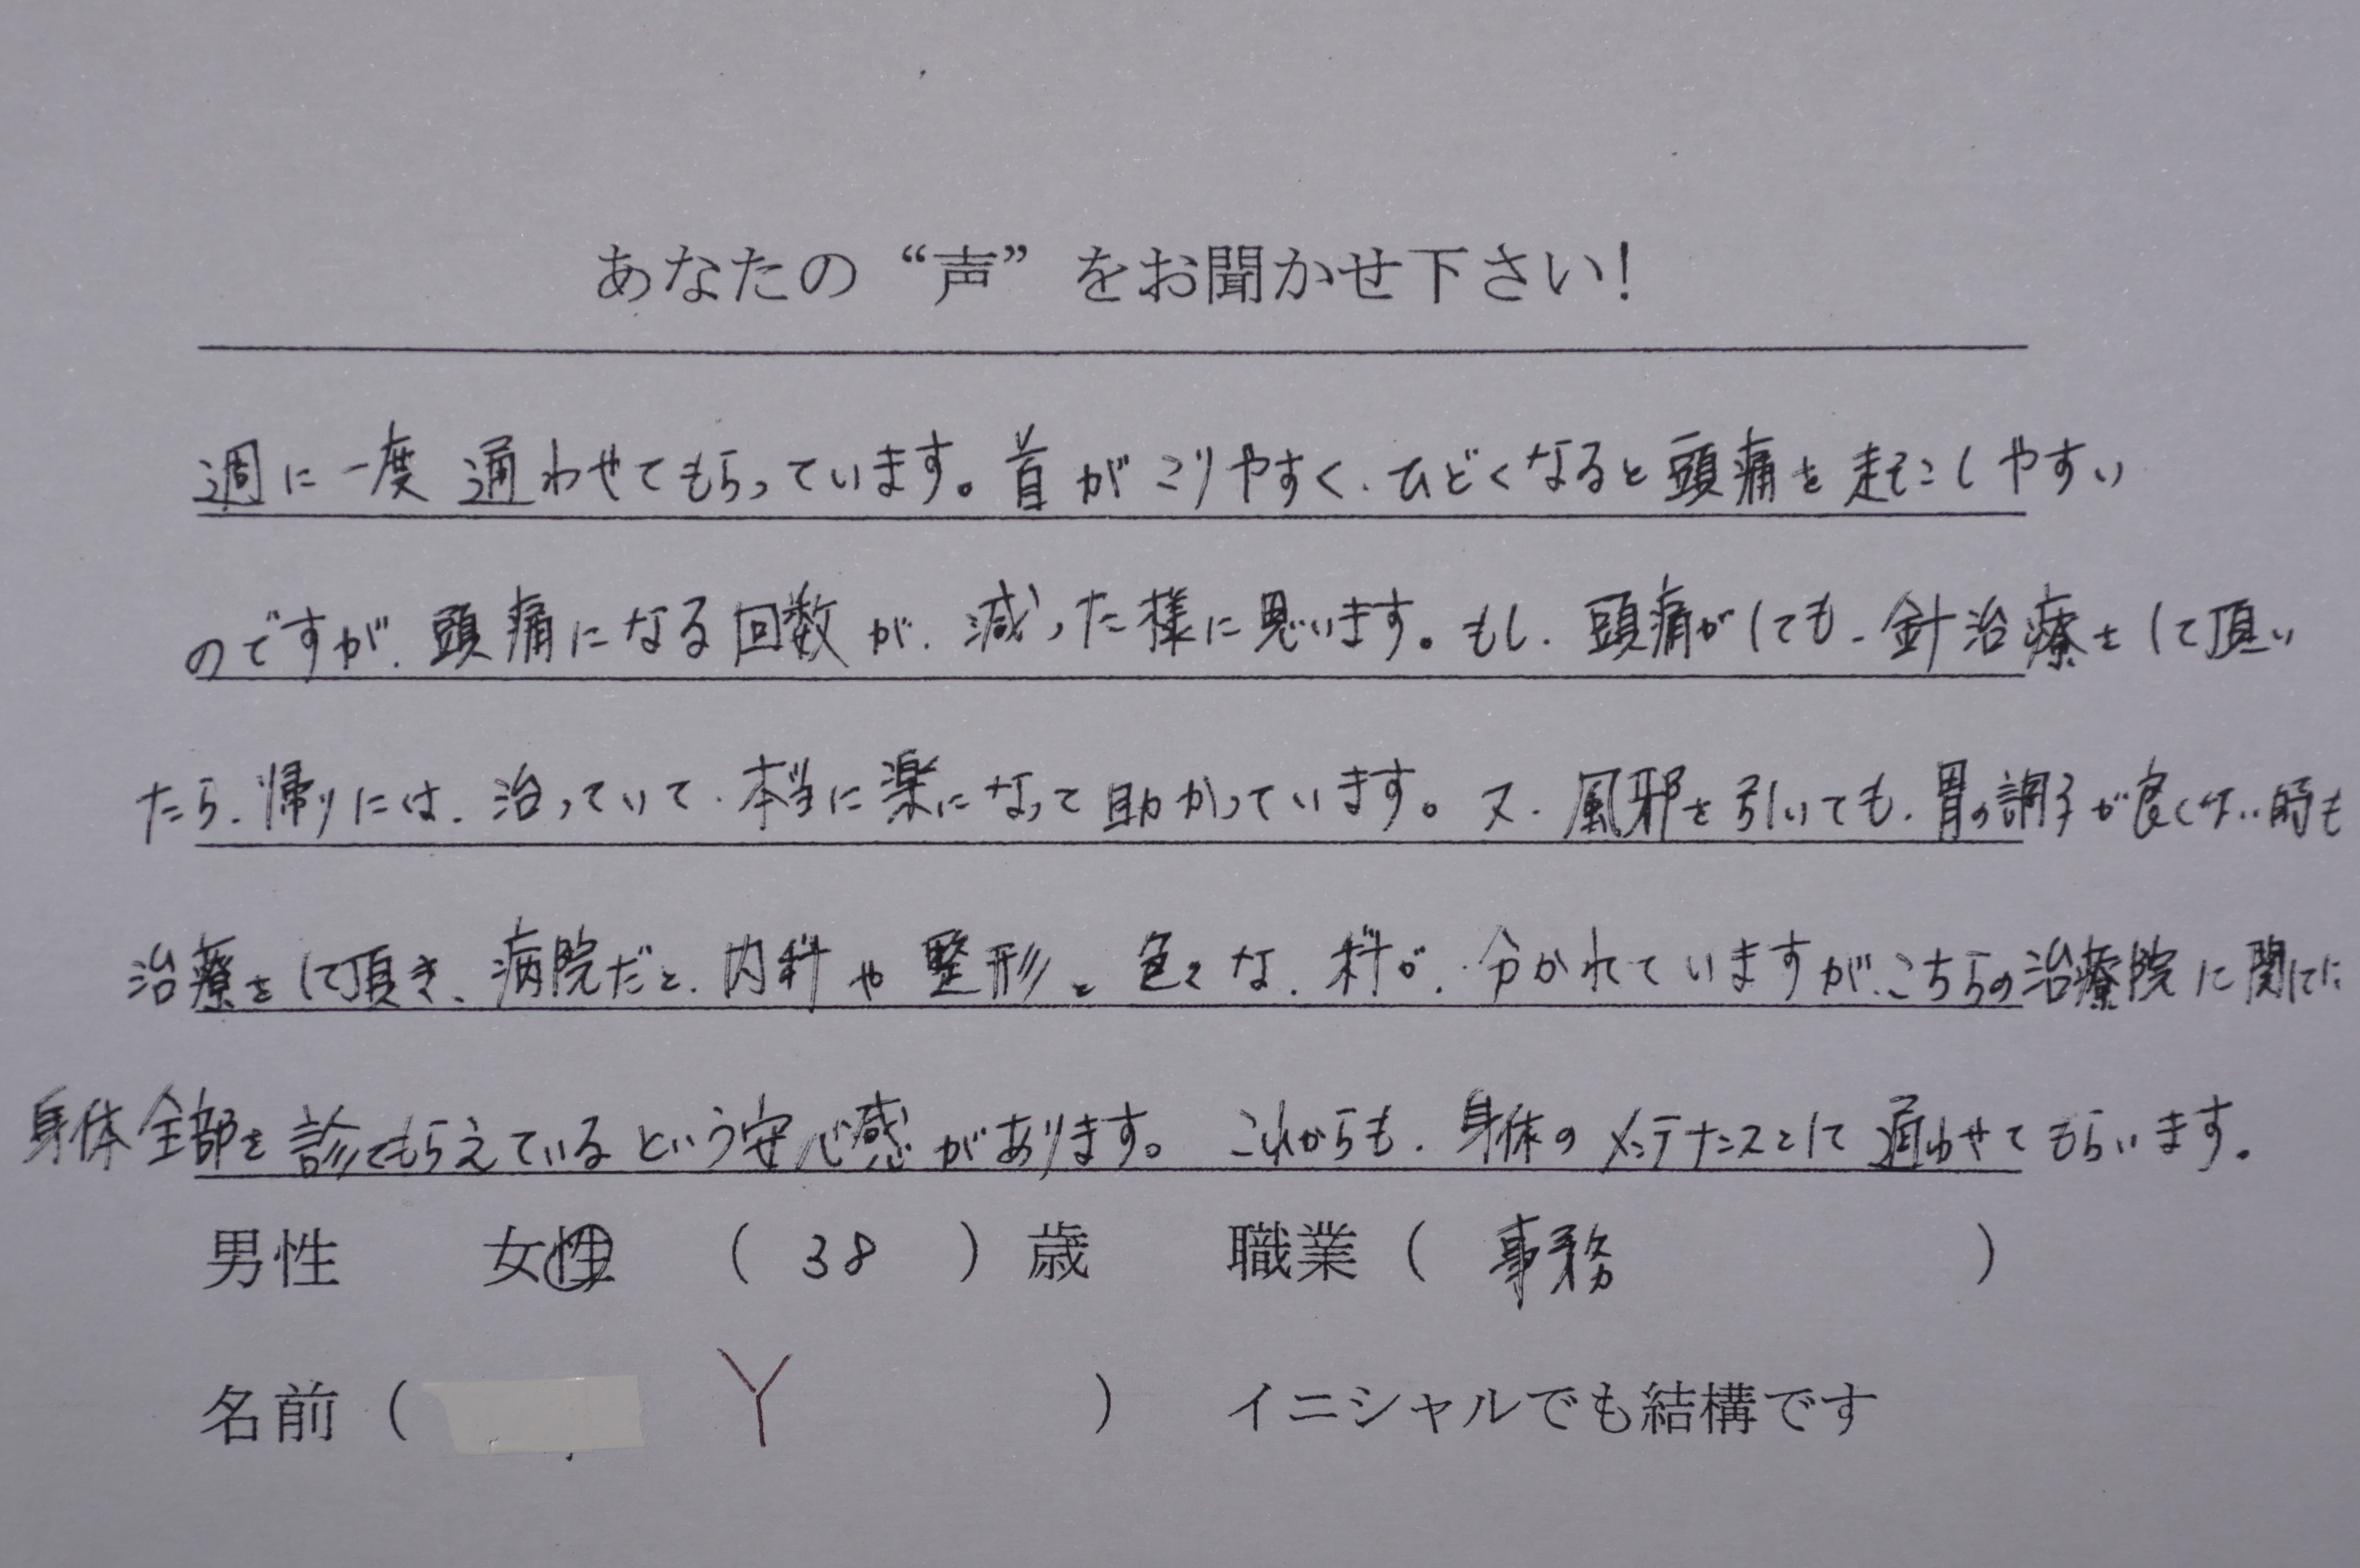 あなたの“声”をお聞かせ下さい!
週に一度 通わせてもらっています。首がこりやすく、ひどくなると頭痛を起こしやすい
のですが、頭痛になる回数が、減った様に思います。もし、頭痛がしても、針治療をして頂い
たら、帰りには、治っていて、本当に楽になって助かっています。又、風邪を引いても、胃の調子が良くない時も
治療をして頂き、病院だと、内科や整形と色々な、科が、分かれていますが、こちらの治療院に関しては
身体全部を診てもらえているという安心感があります。これからも、身体のメンテナンスとして通わせてもらいます。
男性 女性 (38)歳 職業(事務)
名前( Y ) イニシャルでも結構です